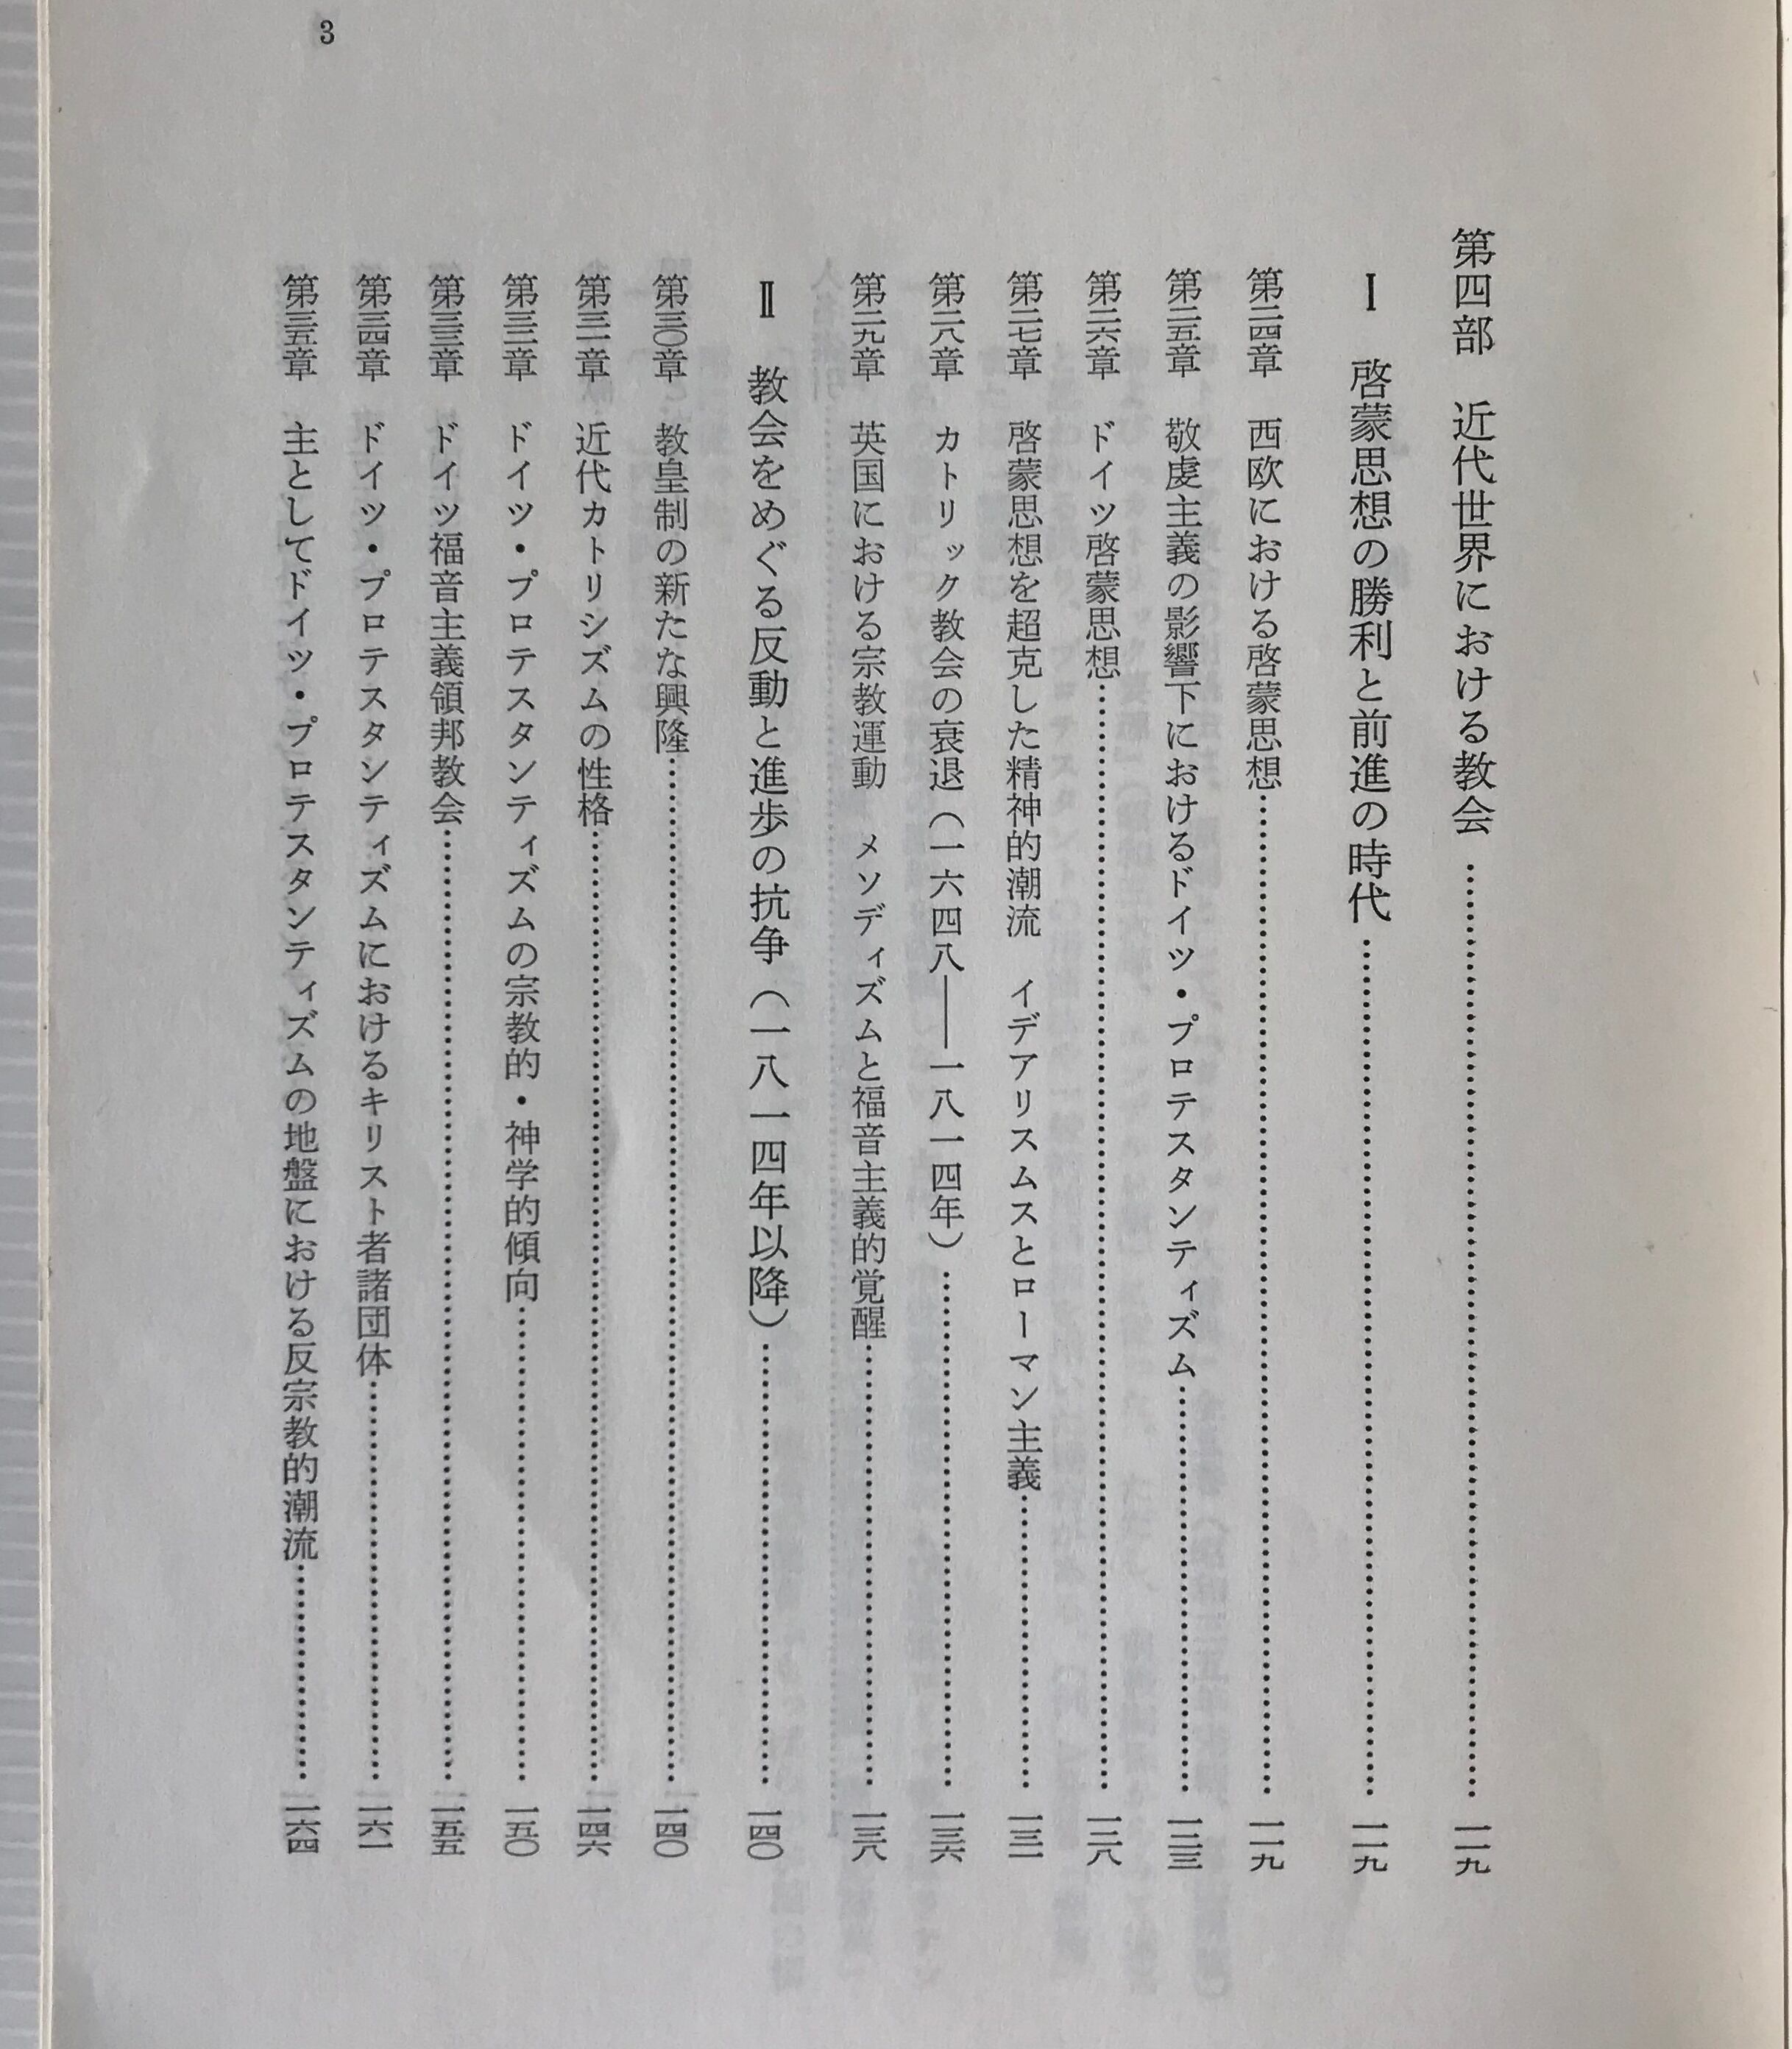 第四部 近代世界における教会……一一九
Ⅰ 啓蒙思想の勝利と前進の時代……一一九
第二四章 西欧における啓蒙思想……一一九
第二五章 敬虔主義の影響下におけるドイツ・プロテスタンティズム……一二三
第二六章 ドイツ啓蒙思想……一二八
第二七章 啓蒙思想を超克した精神的潮流 イデアリスムスとローマン主義……一三一
第二八章 カトリック教会の衰退（一六四八――一八一四年）……一三六
第二九章 英国における宗教運動 メソディズムと福音主義的覚醒……一三八
Ⅱ 教会をめぐる反動と進歩の抗争（一八一四年以降）……一四〇
第三〇章 教皇制の新たな興隆……一四〇
第三一章 近代カトリシズムの性格……一四六
第三二章 ドイツ・プロテスタンティズムの宗教的・神学的傾向……一五〇
第三三章 ドイツ福音主義領邦教会……一五五
第三四章 ドイツ・プロテスタンティズムにおけるキリスト者諸団体……一六一
第三五章 主としてドイツ・プロテスタンティズムの地盤における反宗教的潮流……一六四
3